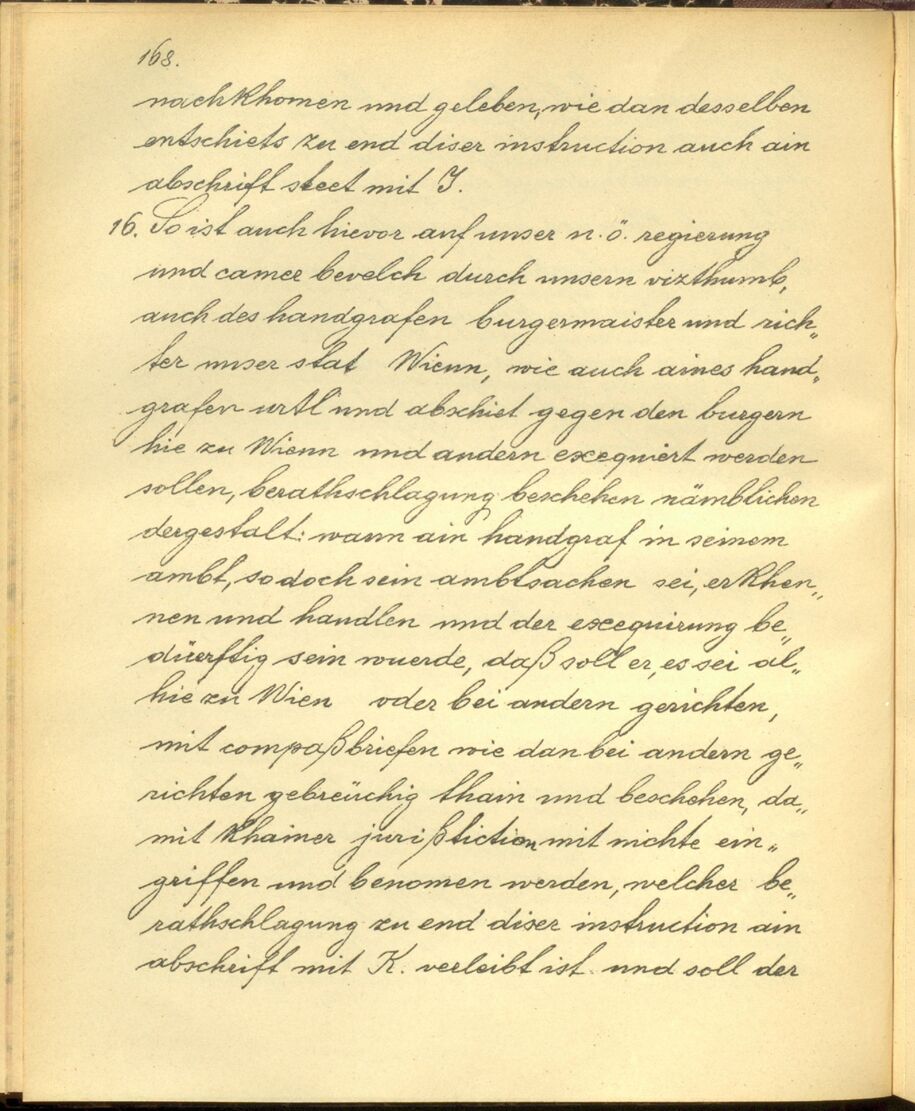 168.
nachkhomen und geleben, wie dan desselben
entschiets zu end diser instruction auch ain
abschrift steet mit J.
16. So ist auch hievor auf unser n. ö. regierung
und camer bevelch durch unsern vizthumb,
auch des handgrafen burgermaister und rich„
ter unser stat Wienn, wie auch aines hand„
grafen urtl und abschiet gegen den burgern
hie zu Wienn und andern exequiert werden
sollen, berathschlagung beschehen nämblichen
dergestalt: wann ain handgraf in seinem
ambt, so doch sein ambtsachen sei, erkhen„
nen und handlen und der exequirung be„
düerftig sein wuerde, daß soll er, es sei al„
hie zu Wien oder bei andern gerichten,
mit compaßbriefen wie dan bei andern ge„
richten gebreüchig thain und beschehen, da„
mit khainer jurißtiction mit nichte ein„
griffen und benomen werden, welcher be„
rathschlagung zu end diser instruction ain
abschrift mit K. verleibt ist und soll der